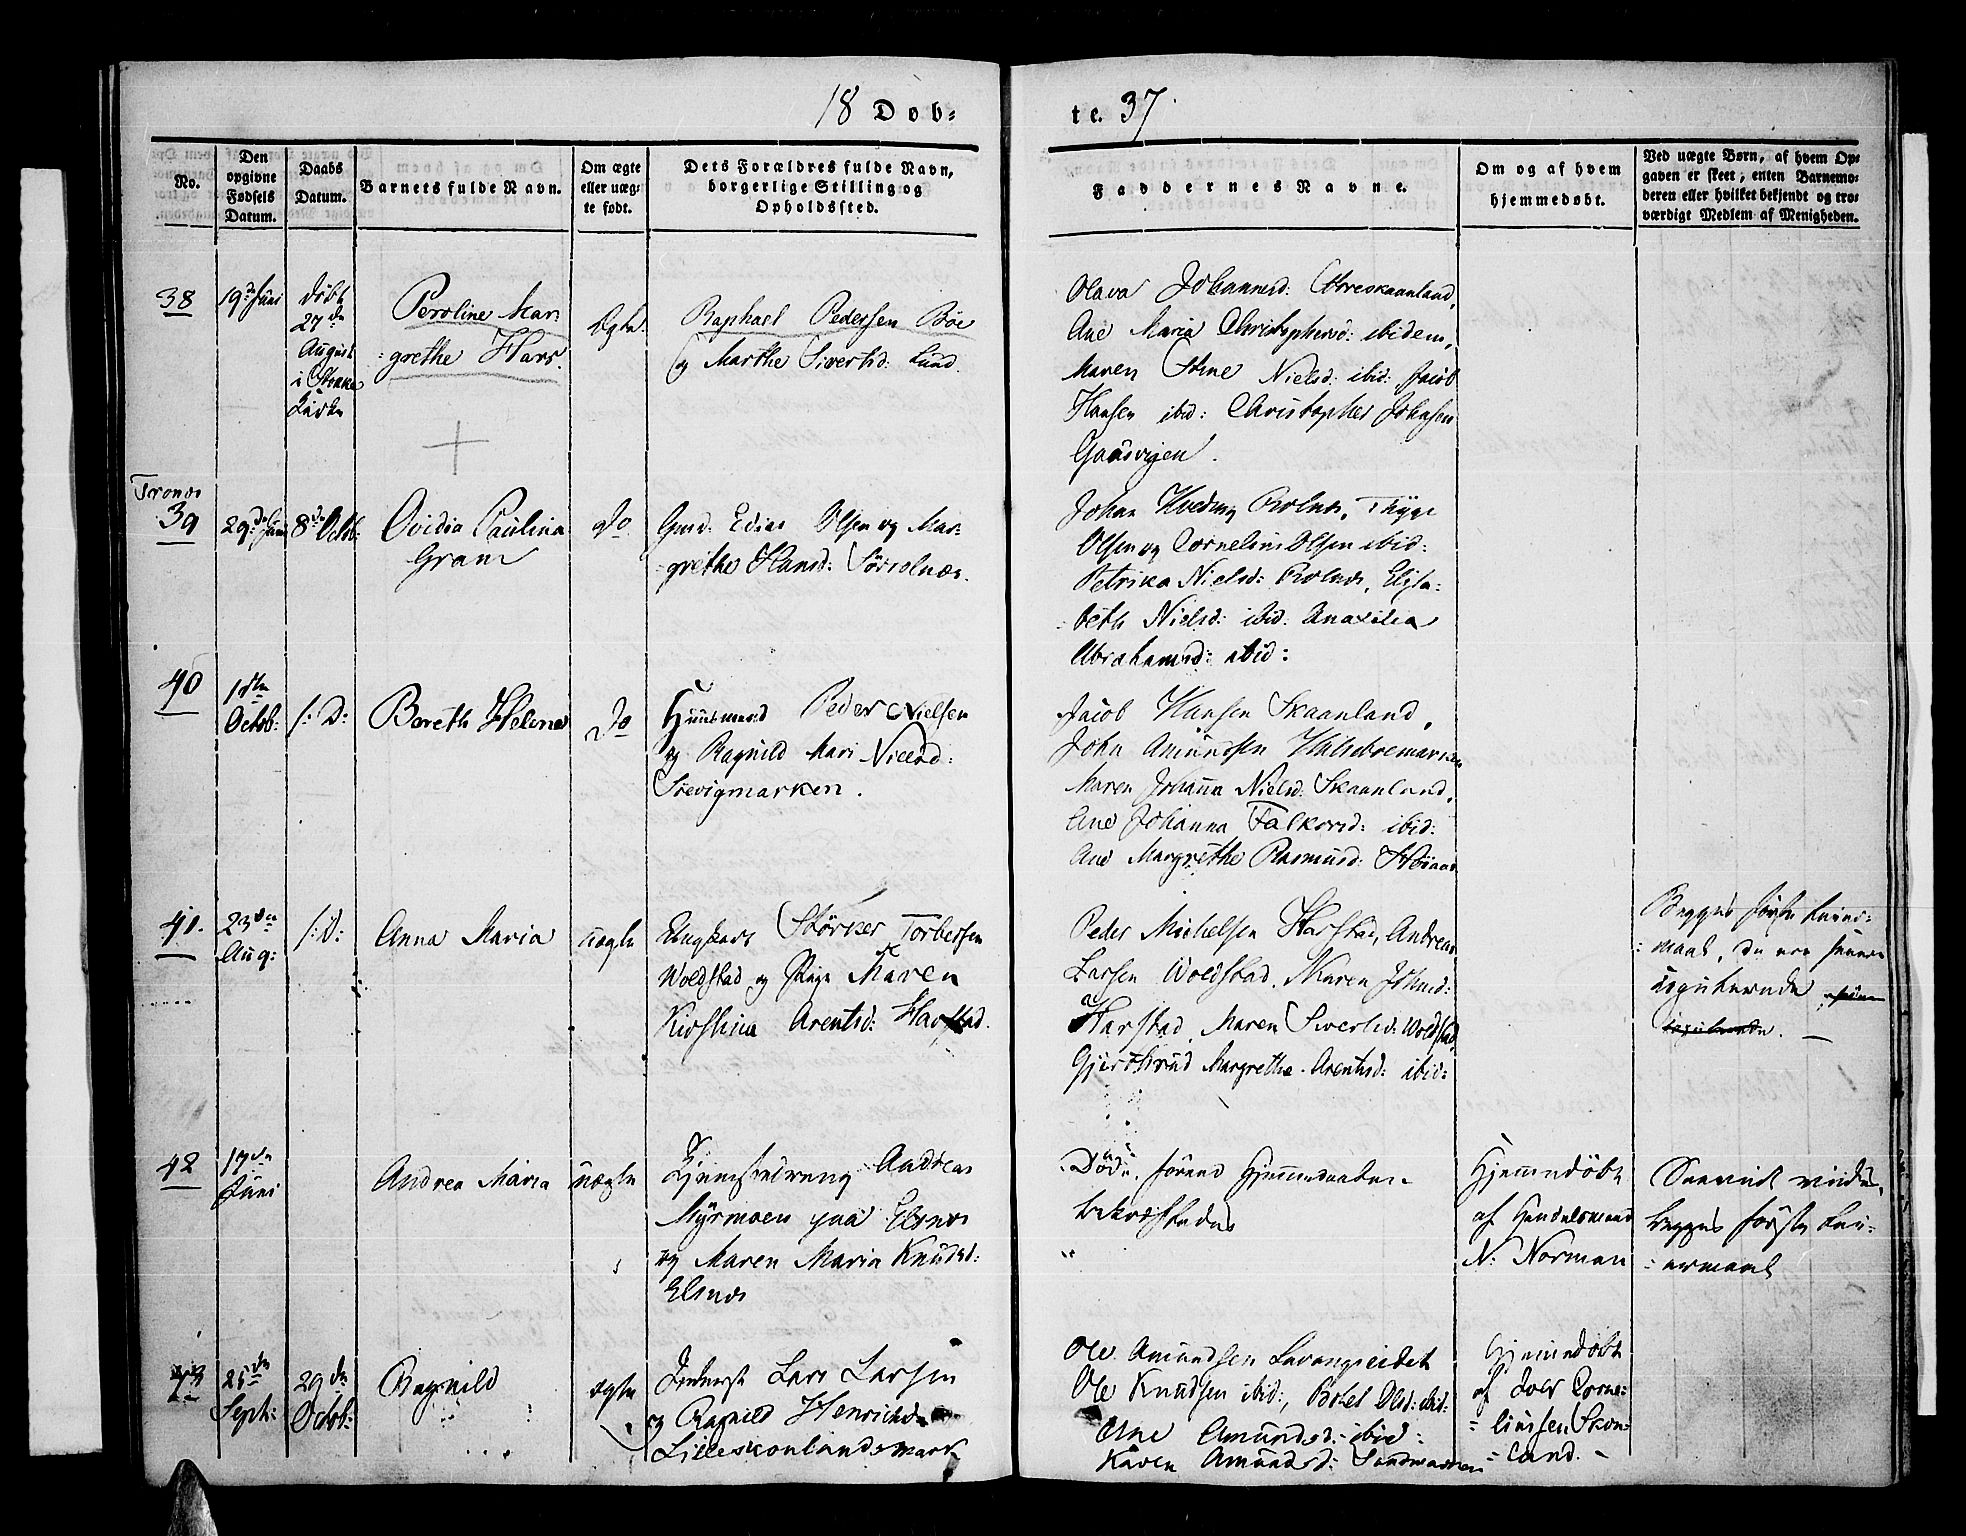 18 Døb=
te. 37.
No.
Den
opgivne
Fødsels
Datum.
Daabs
Datum.
Barnets fulde Navn.
Om ægte
eller uæg=
te født.
Dets Forældres fulde Navn,
borgerlige Stilling og
Opholdssted.
Faddernes Navne.
Om og af hvem
hjemmedøbt.
Ved uægte Børn, af hvem Op=
gaven er skeet; enten Barnemo=
deren eller hvilket bekjendt og tro=
værdigt Medlem af Menigheden.
38
19de Juni
døbt
27de
August
i
Kirke
Peroline Mar=
=grethe Hars.
ægte
Raphael Pedersen Böe
og Marthe Sivertsd: Lund.
Olava Johannesd:
Ane Maria Christophersd: ibidem,
Maren Stine Nielsd: ibid: Jacob
Hansen ibid: Christopher Johnsen
Gaasvigen.
Tronæs
39
29de Juni
8de Octob:
Ovidia Paulina
Gram
do
Gmd: Edias Olsen og Mar=
=grethe Hansd:
Johan Hveding Rolnæs, Thyge
Olsen og Cornelius Olsen ibid:
Petrika Nielsd: Rolnæs, Elisa=
=beth Nielsd: ibid: Anaxilia
Abrahamsd: ibid:
40
1ste
Octob:
/: D:
Bereth Helene
do
Huusmand Peder Nielsen
og Ragnild Mari Nielsd:
Sörvigmarken.
Jacob Hansen Skaanland,
John Amundsen
Maren Johanna Nielsd: Skaanland,
Ane Johanna Falkorsd: ibid:
Ane Margrethe Rasmusd:
41.
23de
Aug:
/: D:
Anna Maria
uægte
Ungkarl Störker Torbersen
Woldstad og Pige Maren
Kirstina Arentsd: Harstad.
Peder Michelsen Harstad, Andreas
Larsen Woldstad, Maren Johnsd:
Harstad, Maren Sivertsd: Woldstad,
Gjerthrud Margrethe Arentsd: ibid:
Begges første Leier=
=maal,
42
17de
Juni
Andrea Maria
uægte
Tjenestedreng Andreas
Myrmoen paa Elsnæs
og Maren Maria Knudsd:
Elsnæs
Döde, förend Hjemmedaaben
bekræftedes
Hjemmedöbt
af Handelsmand
N: Norman
begges første Lei=
=ermaal
43
25de
Sept:
29de
Octob:
Ragnild
ægte
Inderst Lars Larsen
og Ragnild Henrichsd:
Lilleskonlandsmark
Ole Amundsen Lavangseidet
Ole Knudsen ibid:, Botel Olsd: ibid:
Ane Amundsd: ibid:
Karen Amundsd:
Hjemmedöbt
af Joer Corne=
=liussen Skon=
=land.